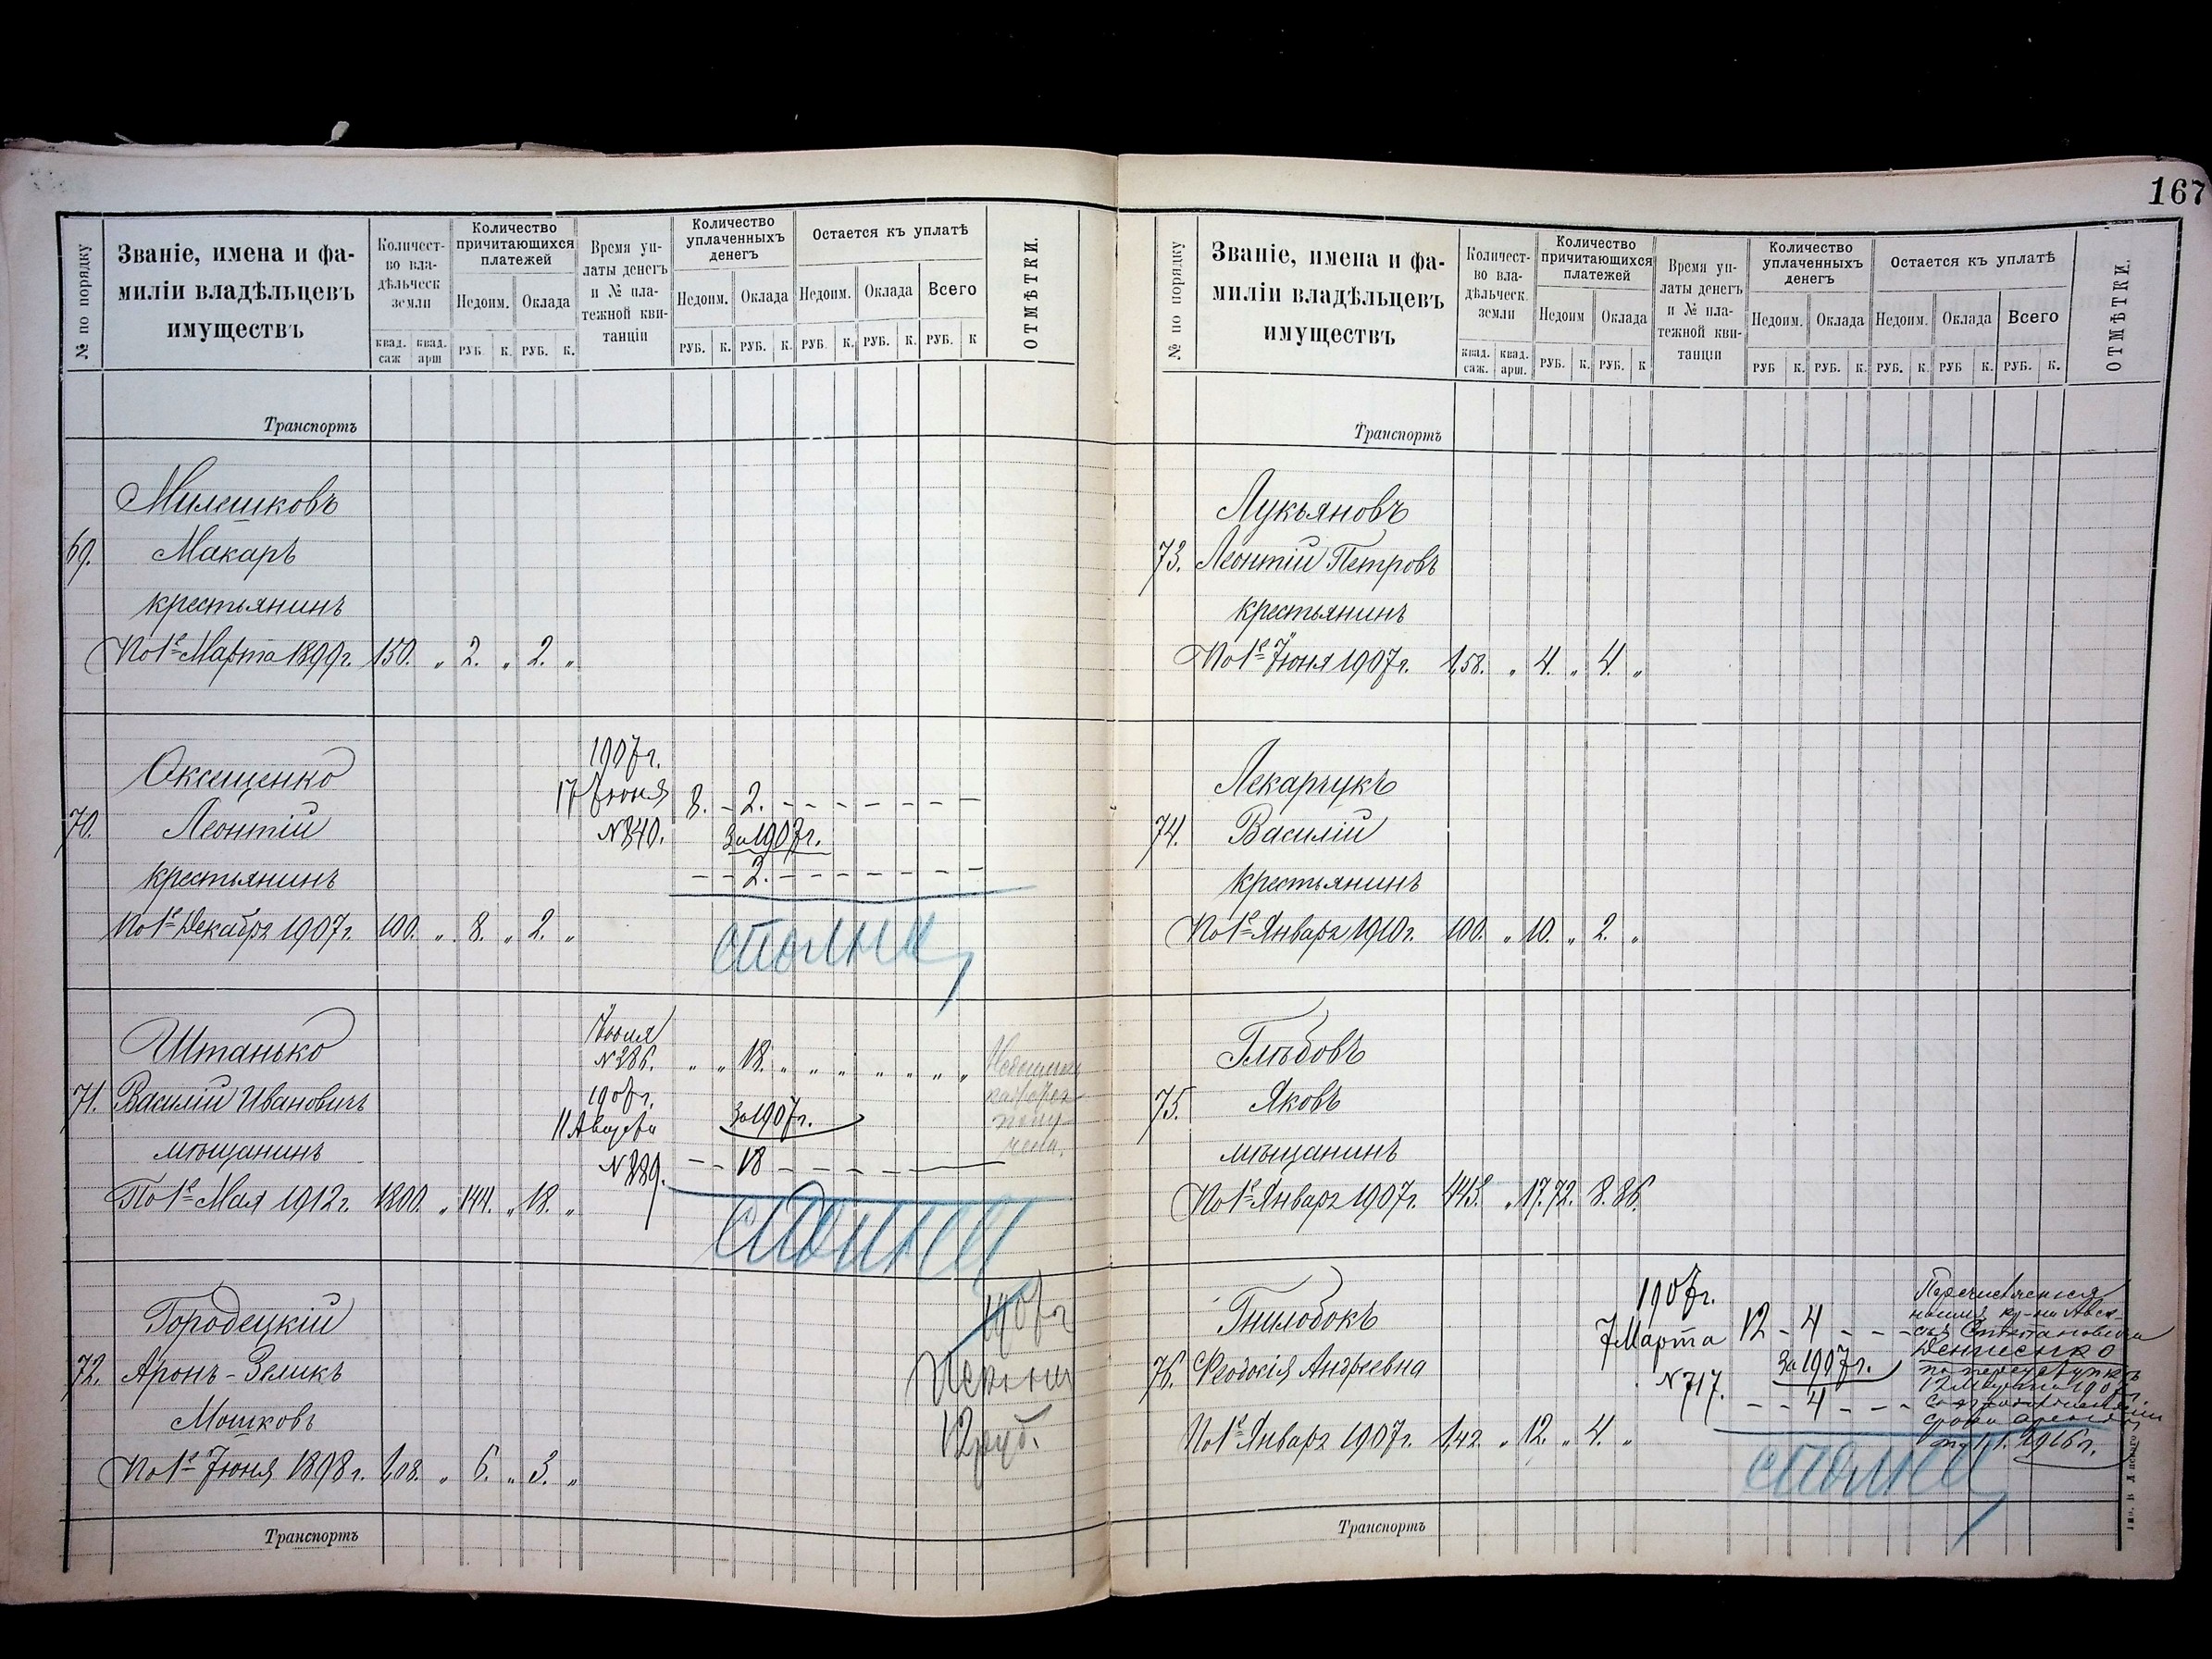 167
№ по порядку
Званіе, имена и фа-
миліи владѣльцевъ
имуществъ
Количест-
во вла-
дѣльческ
земли
квад. саж
квад. арш
Количество
причитающихся
платежей
Недоим.
Оклада
РУБ К. РУБ. К.
Время уп-
латы денегъ
и № пла-
тежной кви-
танціи
Количество
уплаченныхъ
денегъ
Недоим.
Оклада
РУБ. К. РУБ. К.
Остается къ уплатѣ
Недоим.
Оклада
Всего
РУБ. К. РУБ. К. РУБ. К
ОТМѢТКИ.
Транспортъ
Милешковъ
69. Макаръ
крестьянинъ
По 1е Марта 1899 г. 150. „ 2. „ 2. „
1907 г.
Оксещенко
17 Іюня 8. - 2. - - - - - -
70. Леонтій
№ 840. За 1907 г.
крестьянинъ
- - 2. - - - - - -
По 1е Декабря 1907 г. 100. „ 8. „ 2. „
Штанько
№ 286. „ „ 18. „ „ „ „ „ „
71. Василій Ивановичъ
1907 г.
11 За 1907 г.
мѣщанинъ
№ 889. - - 18 - - - -
По 1е Мая 1912 г. 1800. „ 144. „ 18. „
Городецкій
72. Аронъ-Зеликъ
Мошковъ
12 руб.
По 1е Іюня 1898 г. 1,08. „ 6. „ 3. „
Транспортъ
№ по порядку
Званіе, имена и фа-
миліи владѣльцевъ
имуществъ
Количест-
во вла-
дѣльческ.
земли
квад. саж.
квад. арш.
Количество
причитающихся
платежей
Недоим
Оклада
РУБ. К. РУБ. К
Время уп-
латы денегъ
и № пла-
тежной кви-
танціи
Количество
уплаченныхъ
денегъ
Недоим.
Оклада
РУБ К. РУБ. К.
Остается къ уплатѣ
Недоим.
Оклада
Всего
РУБ. К. РУБ К. РУБ. К.
ОТМѢТКИ.
Транспортъ
Лукьяновъ
73. Леонтій Петровъ
крестьянинъ
По 1е Іюня 1907 г. 1,58. „ 4. „ 4. „
Лекарчукъ
74. Василій
крестьянинъ
По 1е Января 1910 г. 100. „ 10. „ 2. „
Глѣбовъ
75. Яковъ
мѣщанинъ
По 1е Января 1907 г. 443. „ 17. 72. 8. 86.
1907 г.
Гнилобокъ
7 Марта 12 - 4 - - -
76. Феодосія Андреевна
№ 717. За 1907 г.
- - 4 - - -
Денисенко
По 1е Января 1907 г. 1,42. „ 12. „ 4. „
1916 г.
Транспортъ